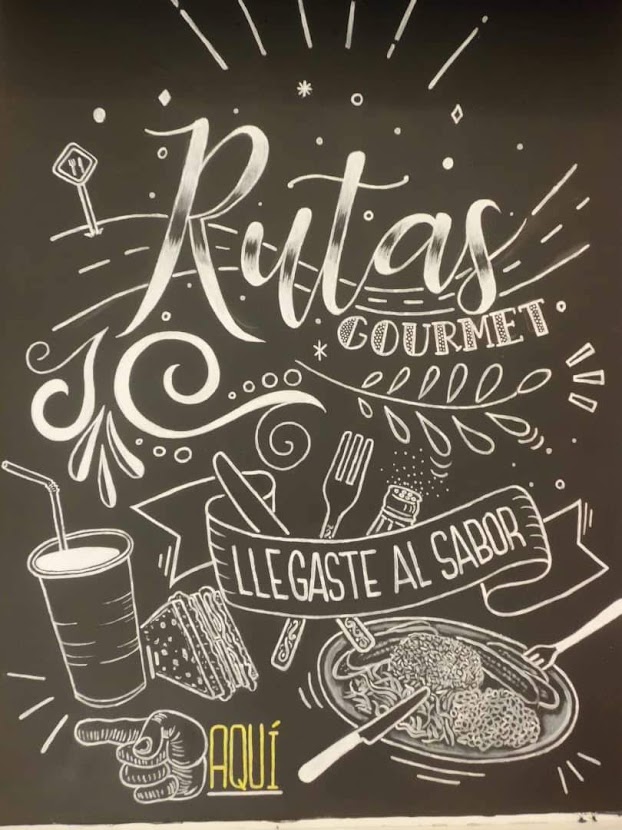 Rutas
GOURMET
LLEGASTE AL SABOR
AQUÍ